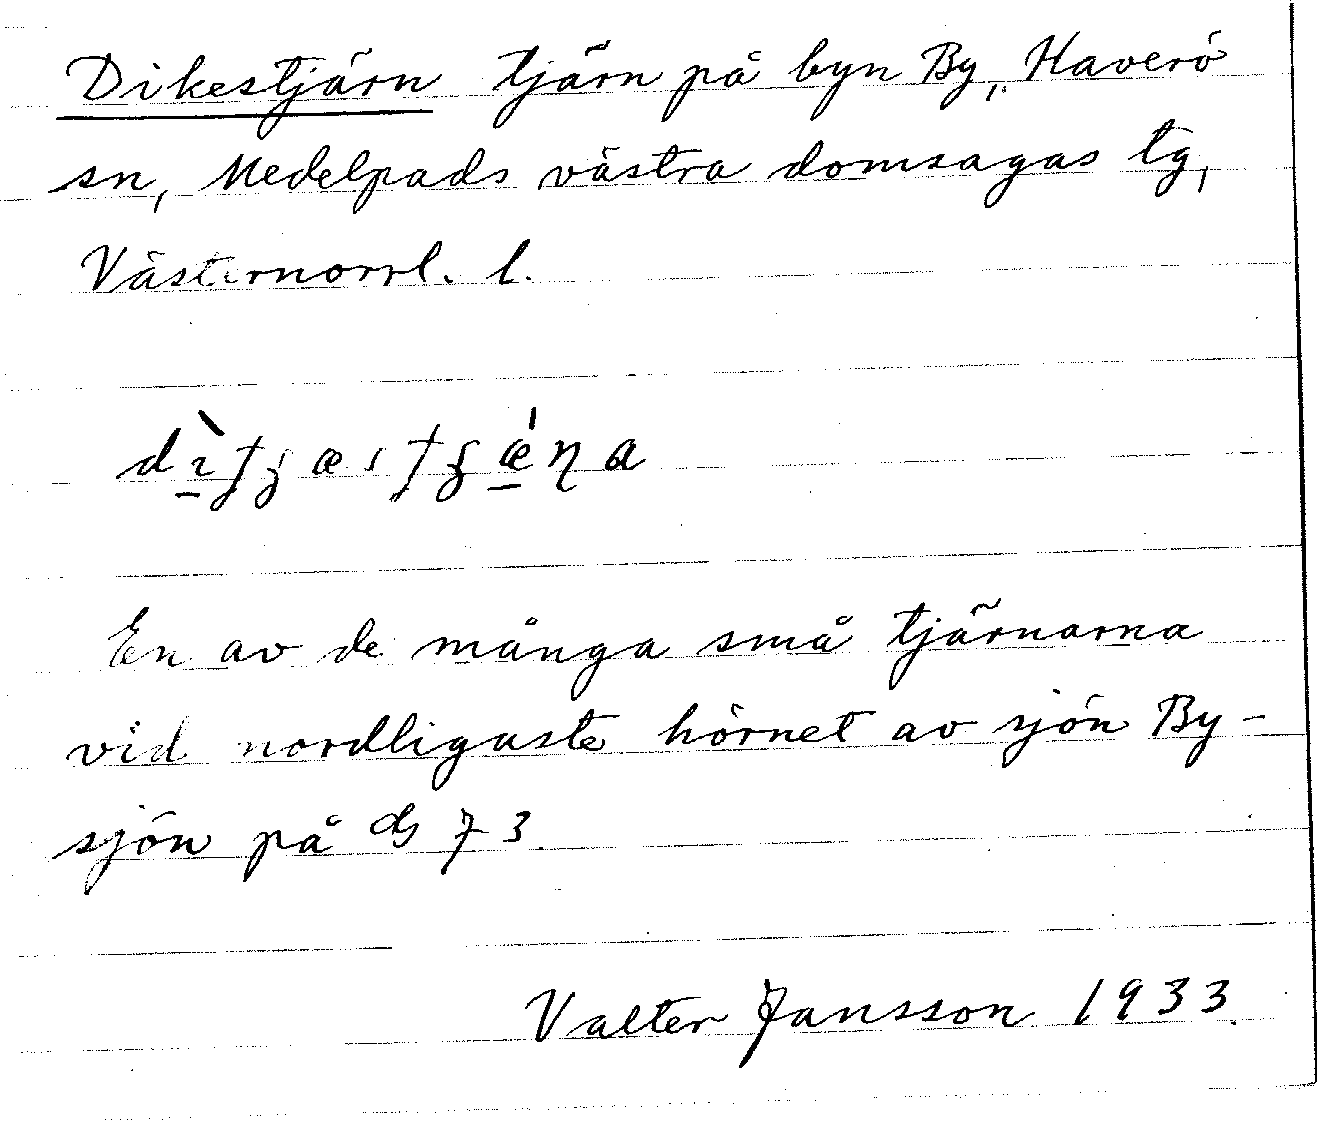 Dikestjärn tjärn på byn By, Haverö
sn, Medelpads västra domsagas tg,
Västernorrl. l.
En av de många små tjärnarna
vid nordligaste hörnet av sjön By-
sjön på 73.
Valter Jansson 1933.